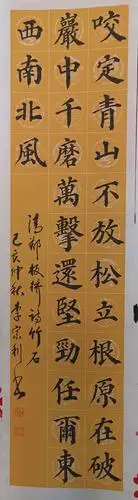 咬定青山不放松立根原在破
巖中千磨萬擊還堅勁任爾東
西南北風
清鄭板橋詩竹石
己亥仲秋李宗利書